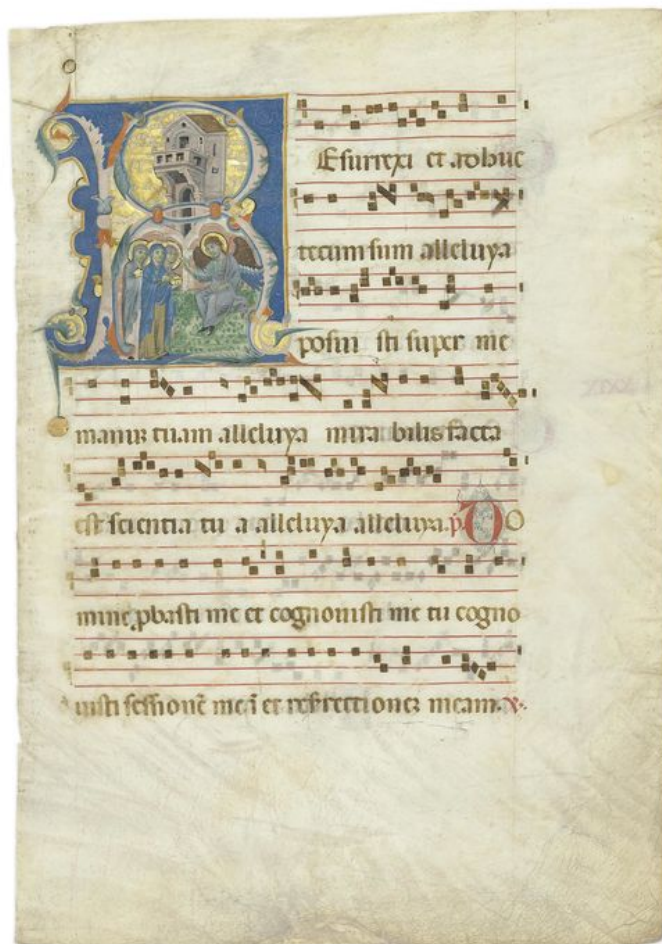 REsurrexi et adhuc
tecum sum alleluya
posui sti super me
manum tuam alleluya mira bilis facta
est scientia tu a alleluya alleluya. p̄. DO
mine p̱basti me et cognouisti me tu cogno
uisti sessionē meā et resurrectionez meam.